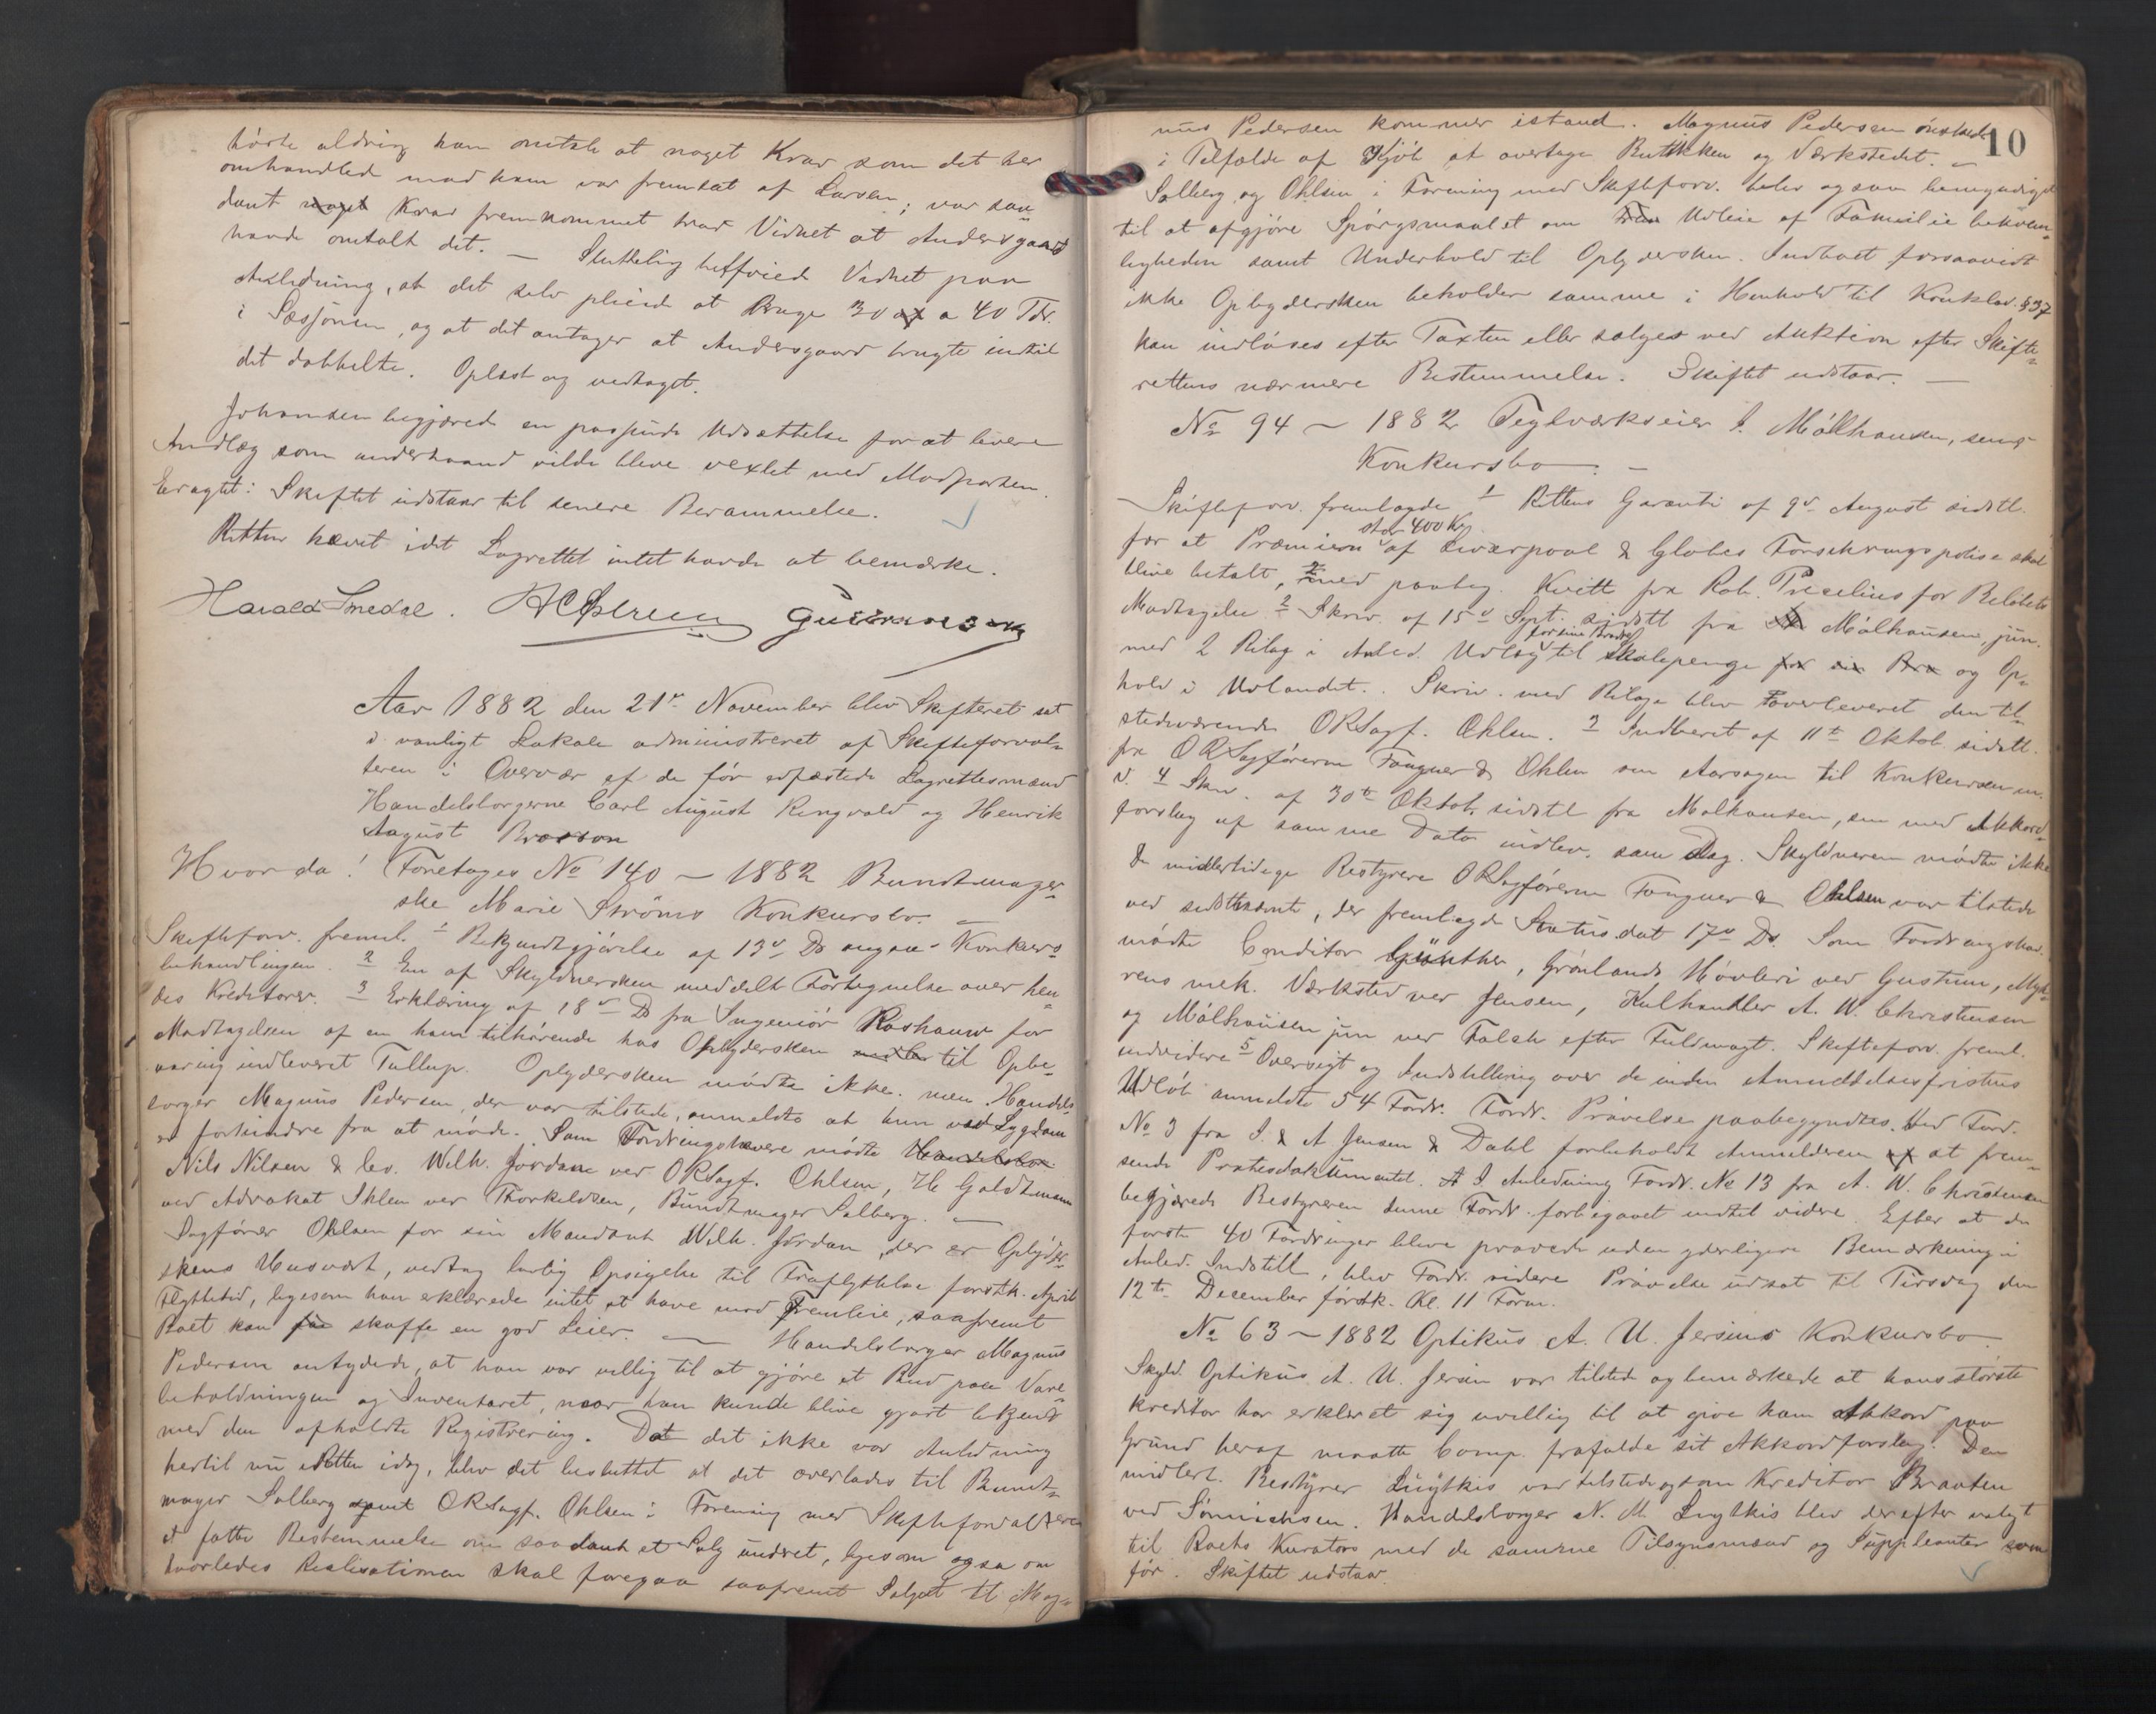 hörte aldrig ham omtale at noget Krav som det her
omhandlede mod ham var fremsat af Larsen; var saa-
dant noget Krav fremkommet tror Vidnet at Andersgaard
havde omtalt det. — Sluttelig tilføied Vidnet paa
Anledning, at det selv pleied at bruge 30 af a 40 Tdr.
i Sæsonen, og at det antager at Andersgaard brugte indtil
det dobbelte. Oplæst og vedtaget.
Johansen begjærede en passende Udsættelse for at levere
Indlæg som underhaand vilde blive vexlet med Modparten.
Eragtet: Skiftet udstaar til senere Berammelse.
Retten hævet idet Lagrettet intet havde at bemærke.
Harald Smedal.
Aar 1882 den 21de November blev Skifteret sat
i vanligt Lokale administreret af Skifteforval-
teren i Overvær af de før edfæstede Lagrettesmænd
Handelsborgerne Carl August Ringvold og Henrik
August
Hvor da! Foretoges No 140 – 1882 Bundtmager-
ske Marie Ströms Konkursbo. —
Skifteforv. freml. 1 Bekjendtgjörelse af 13de Ds angaa. Konkurs-
behandlingen. 2 En af Skyldnersken meddelt Fortegnelse over hen-
des Kreditorer. 3 Erklæring af 18de Ds fra Ingeniör for
Modtagelsen af en ham tilhørende hos Opbydersken til Opbe-
varing indleveret Tullup. Opbydersken mødte ikke. men Handels-
borger Magnus Pedersen, der var tilstede, anmeldte at hun ved Sygdom
er forhindret fra at møde. Som Fordringshavere mødte Handelsbor
Nils Nilsen & Co. Wilh. Jordan ved ORSagf. Ohlsen, H. Goldtmann
ved Advokat Ihlen ved Thorkildsen, Bundtmager Solberg. —
Sagfører Ohlsen for sin Mandant Wilh. Jordan, der er Opbyder-
skens Husvært, vedtog lovlig Opsigelse til Fraflyttelse førstk. April
Flyttetid, ligesom han erklærede intet at have mod Fremleie, saafremt
Boet kan faa skaffe en god Leier. — Handelsborger Magnus
Pedersen antydede, at han var villig til at gjöre et Bud paa Vare-
beholdningen og Inventaret, naar han kunde blive gjort bekjendt
med den afholdte Registrering. Da det ikke var Anledning
hertil nu i Retten idag, blev det besluttet at det overlades til Bundt-
mager Solberg samt ORSagf. Ohlsen i Forening med Skifteforvalteren
at fatte Bestemmelse om saadant et Salg underet, ligesom ogsaa om
hvorledes Realisationen skal foregaa saafremt Salget til Mag-
10
nus Pedersen kommer istand. Magnus Pedersen ønskede
i Tilfælde af Kjöb at overtage Butikken og Værkstedet. —
Solberg og Ohlsen i Forening med Skifteforv. blev ogsaa bemyndiget
til at afgjöre Spörgsmaalet om Udleie af Familiebekvem-
ligheden samt Underhold til Opbydersken. Indboet forsaavidt
ikke Opbydersken beholder samme i Henhold til Konkslov. § 37
kan indlöses efter Taxten eller sælges ved Auktion efter Skifte-
rettens nærmere Bestemmelse. Skiftet udstaar. —
No 94 – 1882 Teglværkseier J. Mölhausen, senrs
Konkursbo. —
Skifteforv. fremlagde 1 Rettens Garanti af 9de August sidstl.
for at Præmien stor 400 Kr. af Liverpool & Globes Forsikringspolise skal
blive betalt, med paateg. Kvitt. fra Rob. for Beløbets
Modtagelse 2 Skriv. af 15de Sept. sidstl. fra Mölhausen jun.
med 2 Bilag i Anled. Udlæg for sine Brödre til Skolepenge for sin Bro og Op-
hold i Udlandet. Skriv. med Bilage blev overleveret den til-
stedeværende ORSagf. Ohlsen. 3 Indberet. af 11te Oktob. sidstl.
fra ORSagførerne Fougner & Ohlsen om Aarsagen til Konkursen m.
v. 4 Skriv. af 30te Oktob. sidstl. fra Mölhausen, sen. med Akkord-
forslag af samme Dato indlev. sam. Dag. Skyldneren mødte ikke
De midlertidige Bestyrere ORSagførerne Fougner & Ohlsen var tilstede
ved sidstnævnte, der fremlagde Status dat. 17de Ds. Som Fordringshav.
mødte Conditor Günther, Grönlands Høvleri ved Gustum, Myh-
rens mek. Værksted ved Jensen, Kulhandler A. W. Christensen
og Mölhausen jun. ved Falck efter Fuldmagt. Skifteforv. freml.
endvidere 5 Oversigt og Indstilling over de inden Anmeldelsesfristens
Udløb anmeldte 54 Fordr. Fordr. Prövelse paabegyndtes. Ved Fordr.
No 3 fra J. & A. Jensen & Dahl forbeholdt Anmelderen af at frem-
sende Protestdokumentet. I Anledning Fordr. No 13 fra A. W. Christensen
begjærede Bestyreren denne Fordr. forbigaaet indtil videre. Efter at de
første 40 Fordringer bleve prøvede uden yderligere Bemærkning i
Anled. Indstill., blev Fordr. videre Prövelse udsat til Tirsdag den
12te December førstk. Kl. 11 Form.
No 63 – 1882 Optikus A. U. Jersins Konkursbo
Skyld. Optikus A. U. Jersin var tilstede og bemærkede at hans største
kreditor har erklæret sig uvillig til at give ham Akkord paa
Grund heraf maatte Comp. frafalde sit Akkordforslag. Den
midlert. Bestyrer Lugtkis var tilstede ogsom Kreditor Braaten
ved Sönnichsen. Handelsborger N. M. Lugtkis blev derefter valgt
til Boets Kurator med de samme Tilsynsmænd og Suppleanter som
før. Skiftet udstaar.